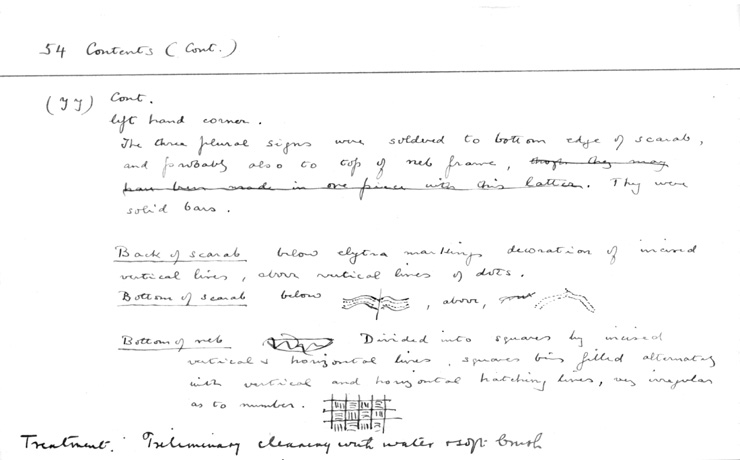 54 Contents (Cont.)
(YY) Cont.
left hand corner.
The three plural signs were soldered to bottom edge of scarab,
and probably also to top of neb frame, though they may
have been made in one piece with this latter. They were
solid bars.
Back of scarab below elytra markings decoration of incised
vertical lines, above vertical lines of dots.
Bottom of scarab below , above,
Bottom of neb Divided into squares by incised
vertical & horizontal lines, squares being filled alternately
with vertical and horizontal hatching lines, very irregular
as to number.
Treatment. Preliminary cleaning with water & soft brush